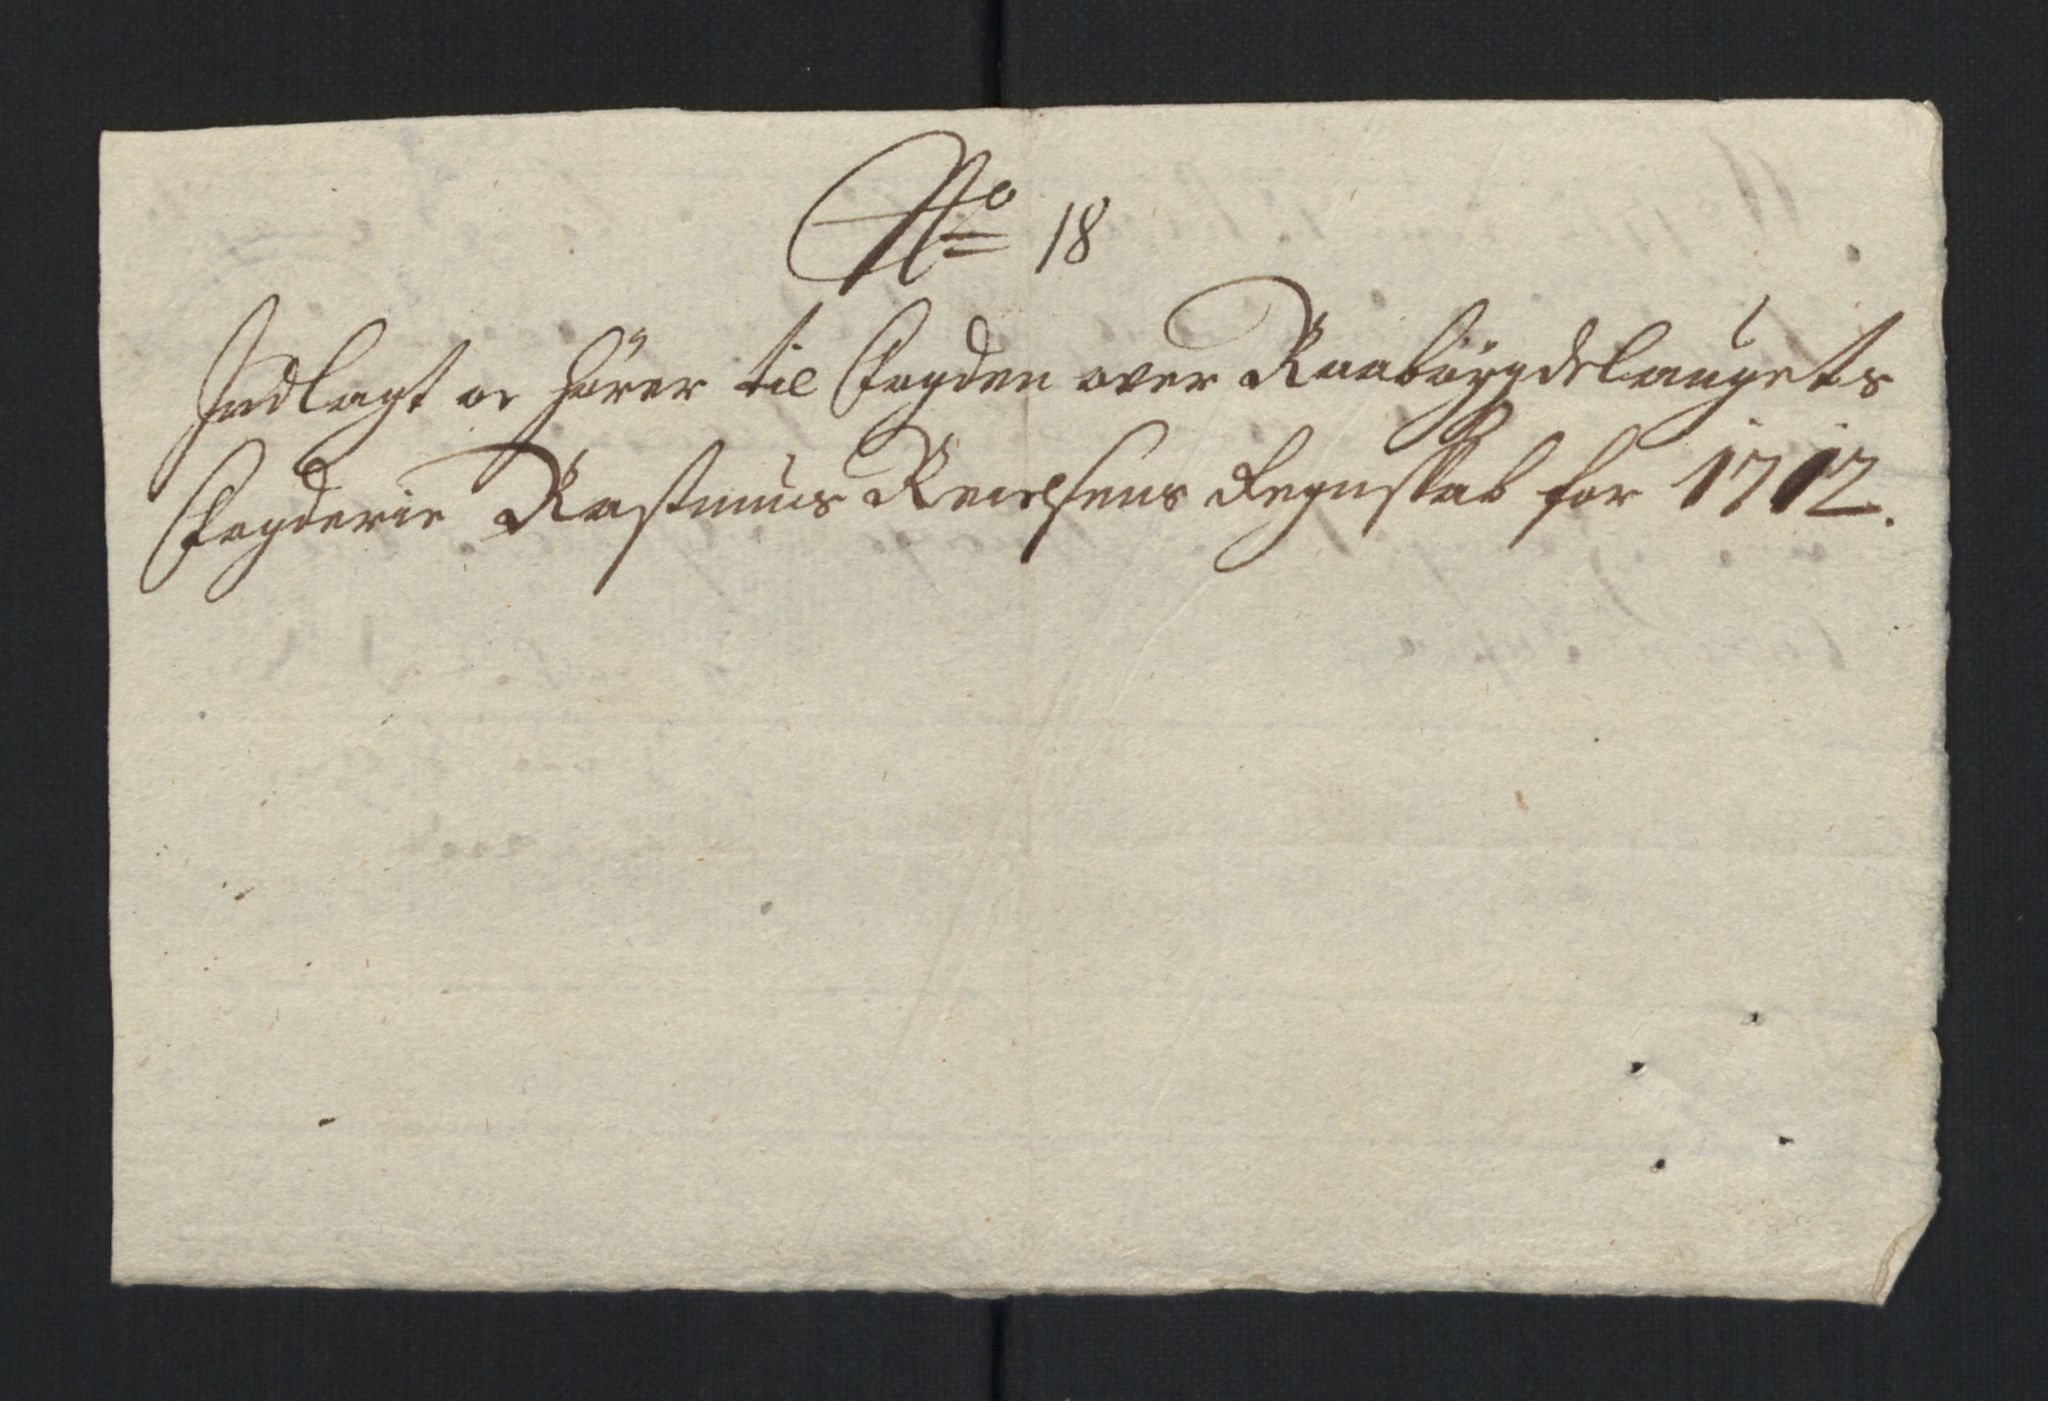 No 18
Indlagt oc hörer til Fogden over Raabÿgdelaugets
Fogderie Rasmus Regnskab for 1712.